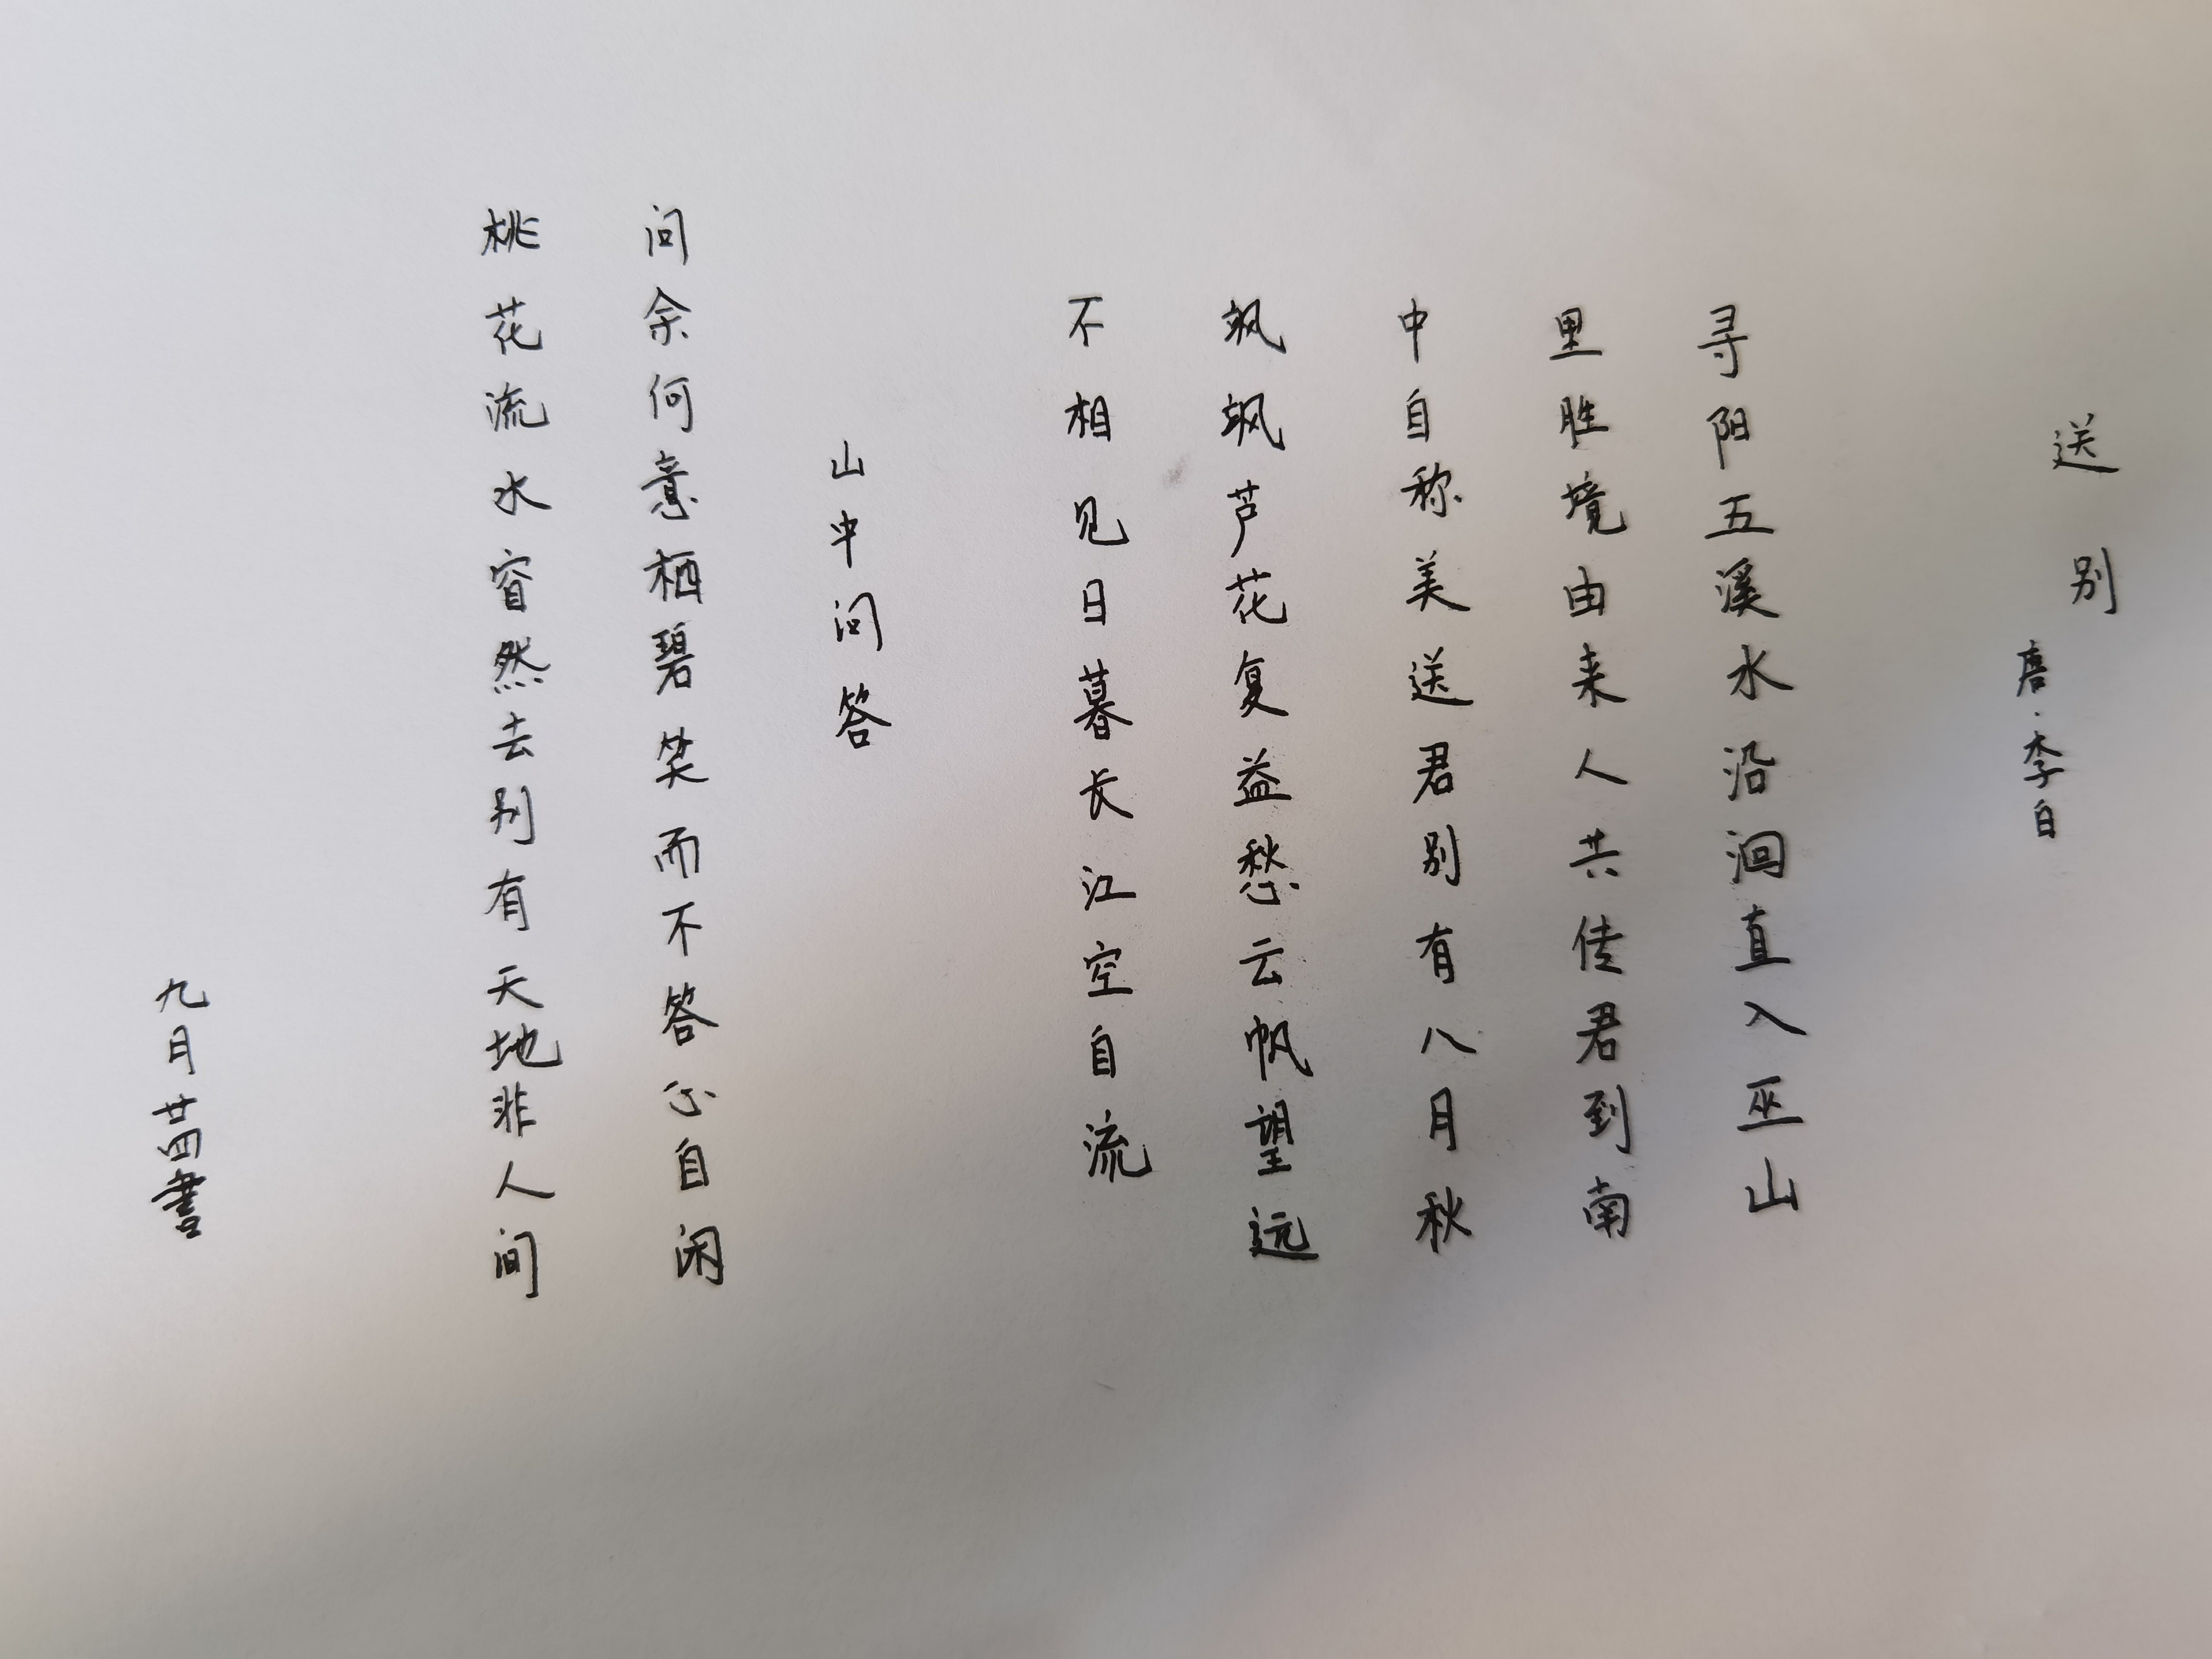 送别
唐·李白
寻阳五溪水沿洄直入巫山
里胜境由来人共传君到南
中自称美送君别有八月秋
飒飒芦花复益愁云帆望远
不相见日暮长江空自流
山中问答
问余何意栖碧笑而不答心自闲
桃花流水窅然去别有天地非人间
九月廿四書